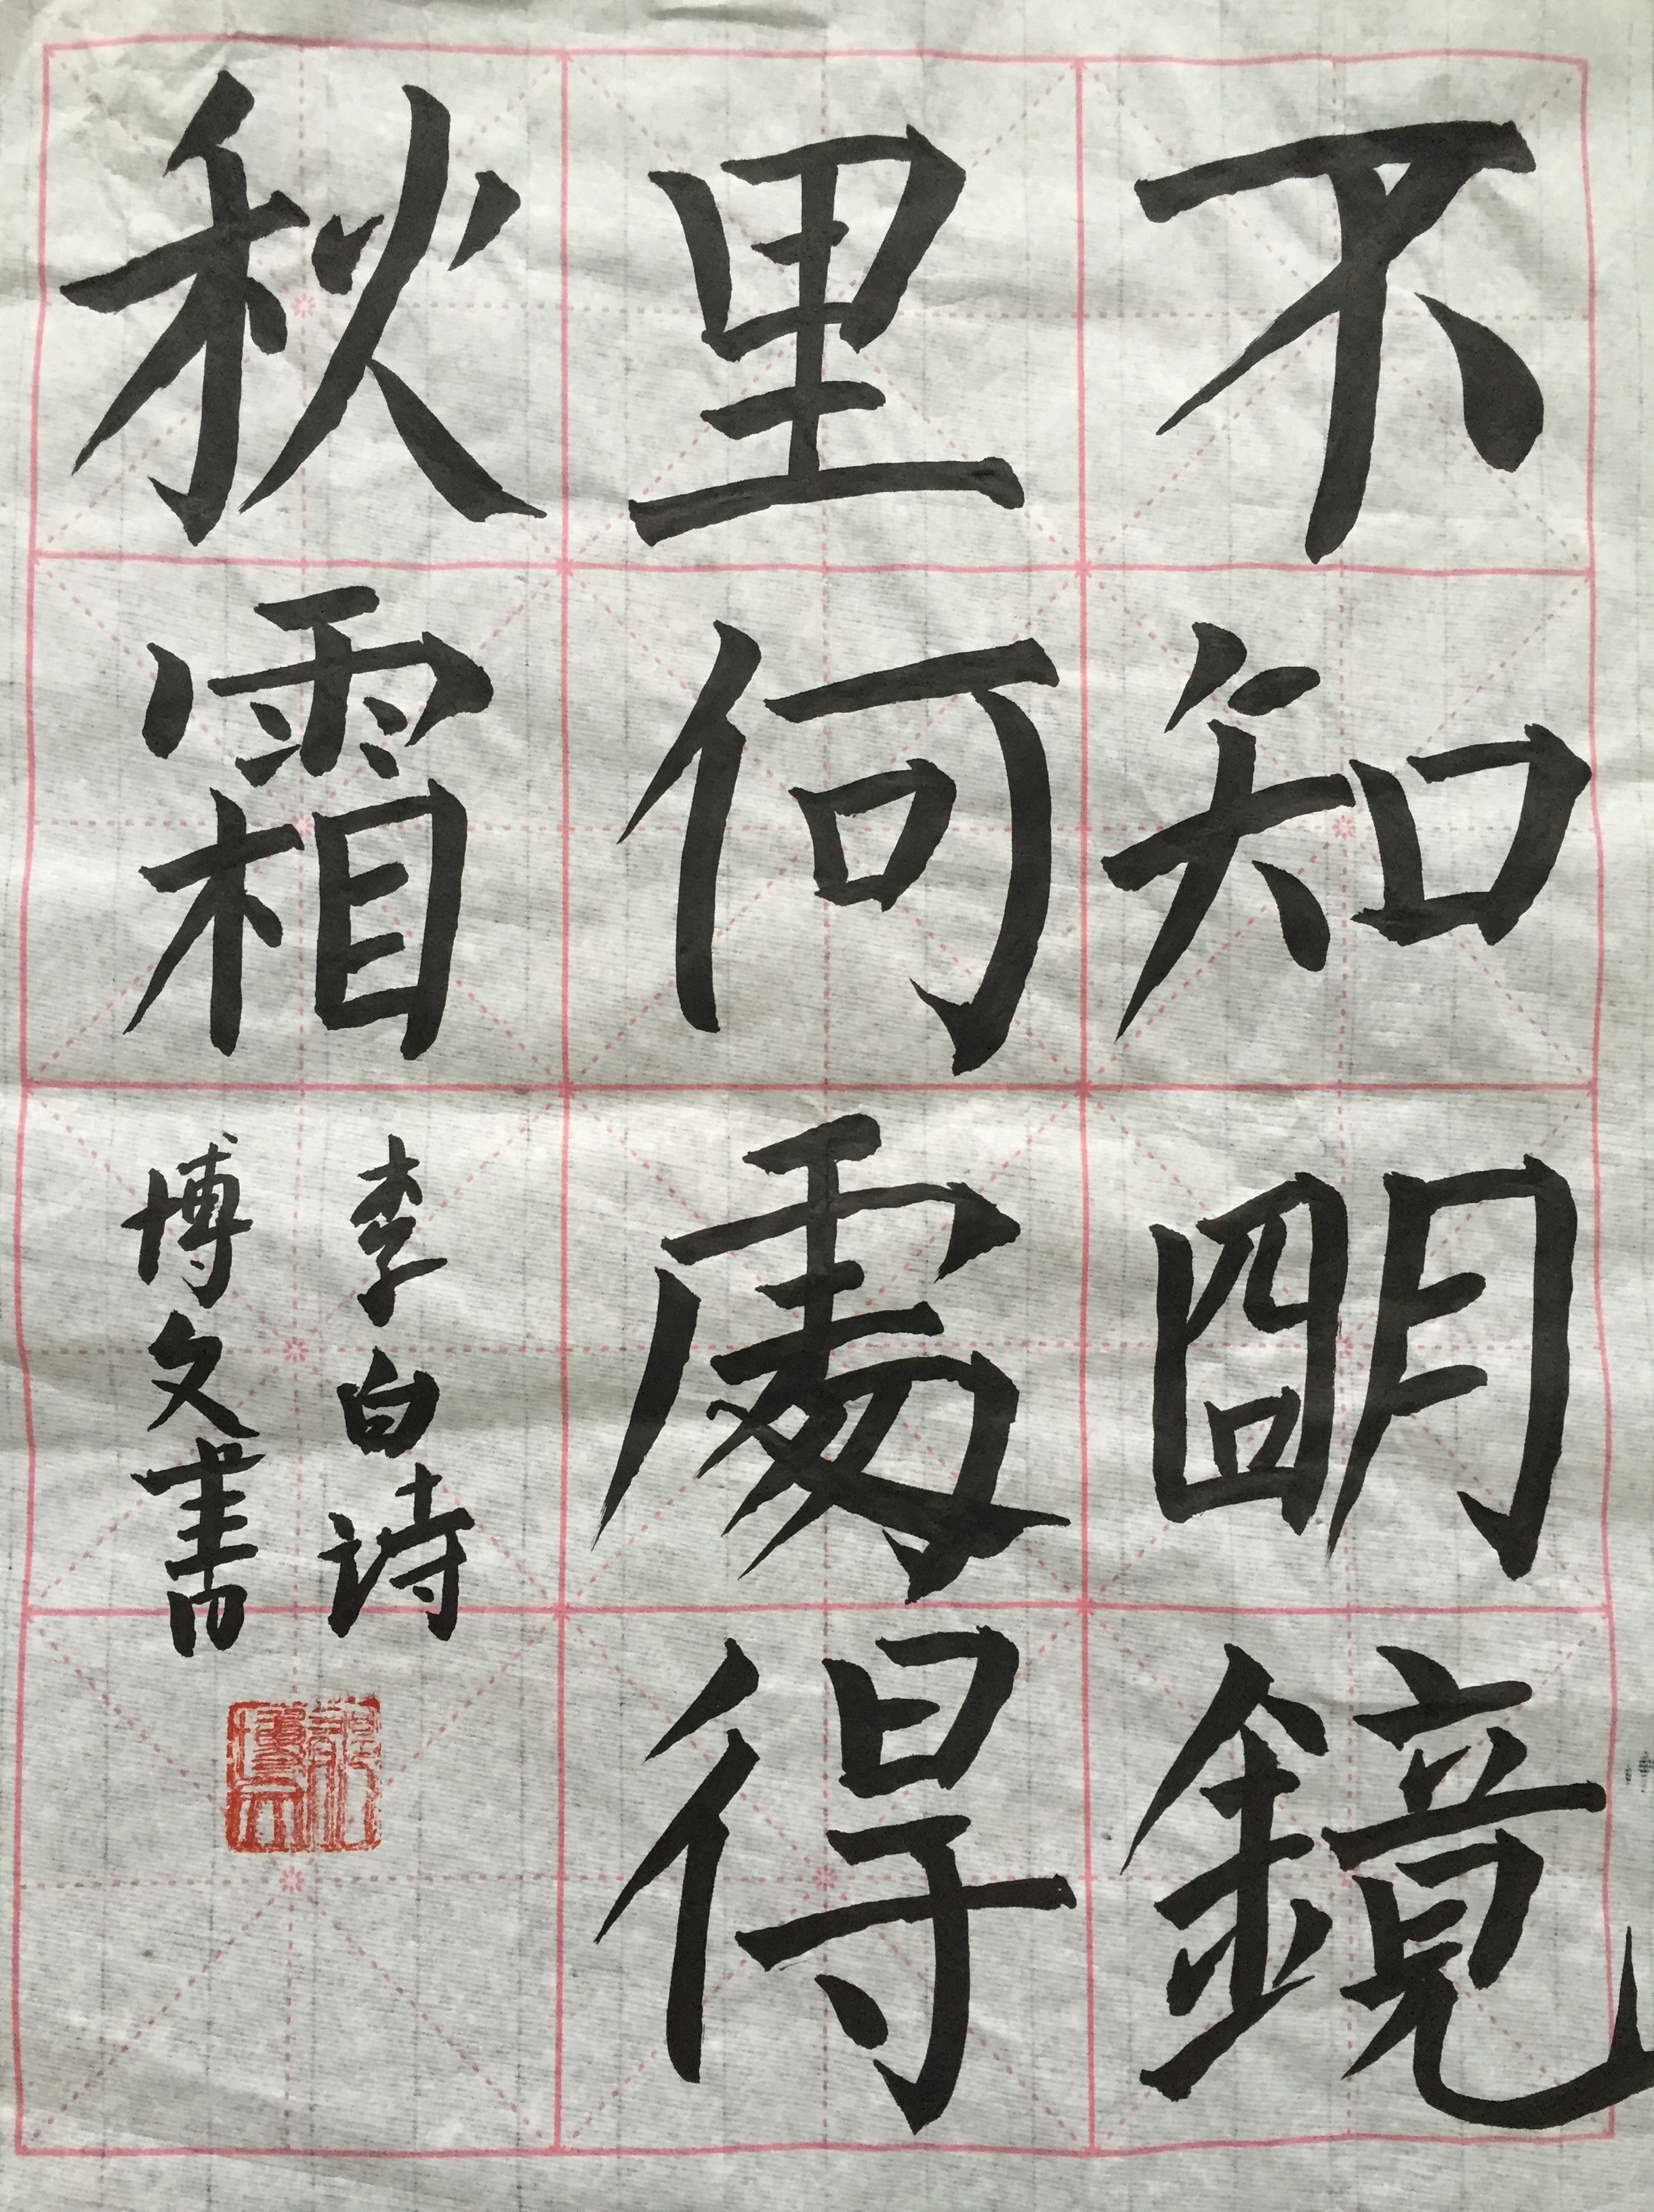 不知明鏡
里何處得
秋霜
李白詩
博文書